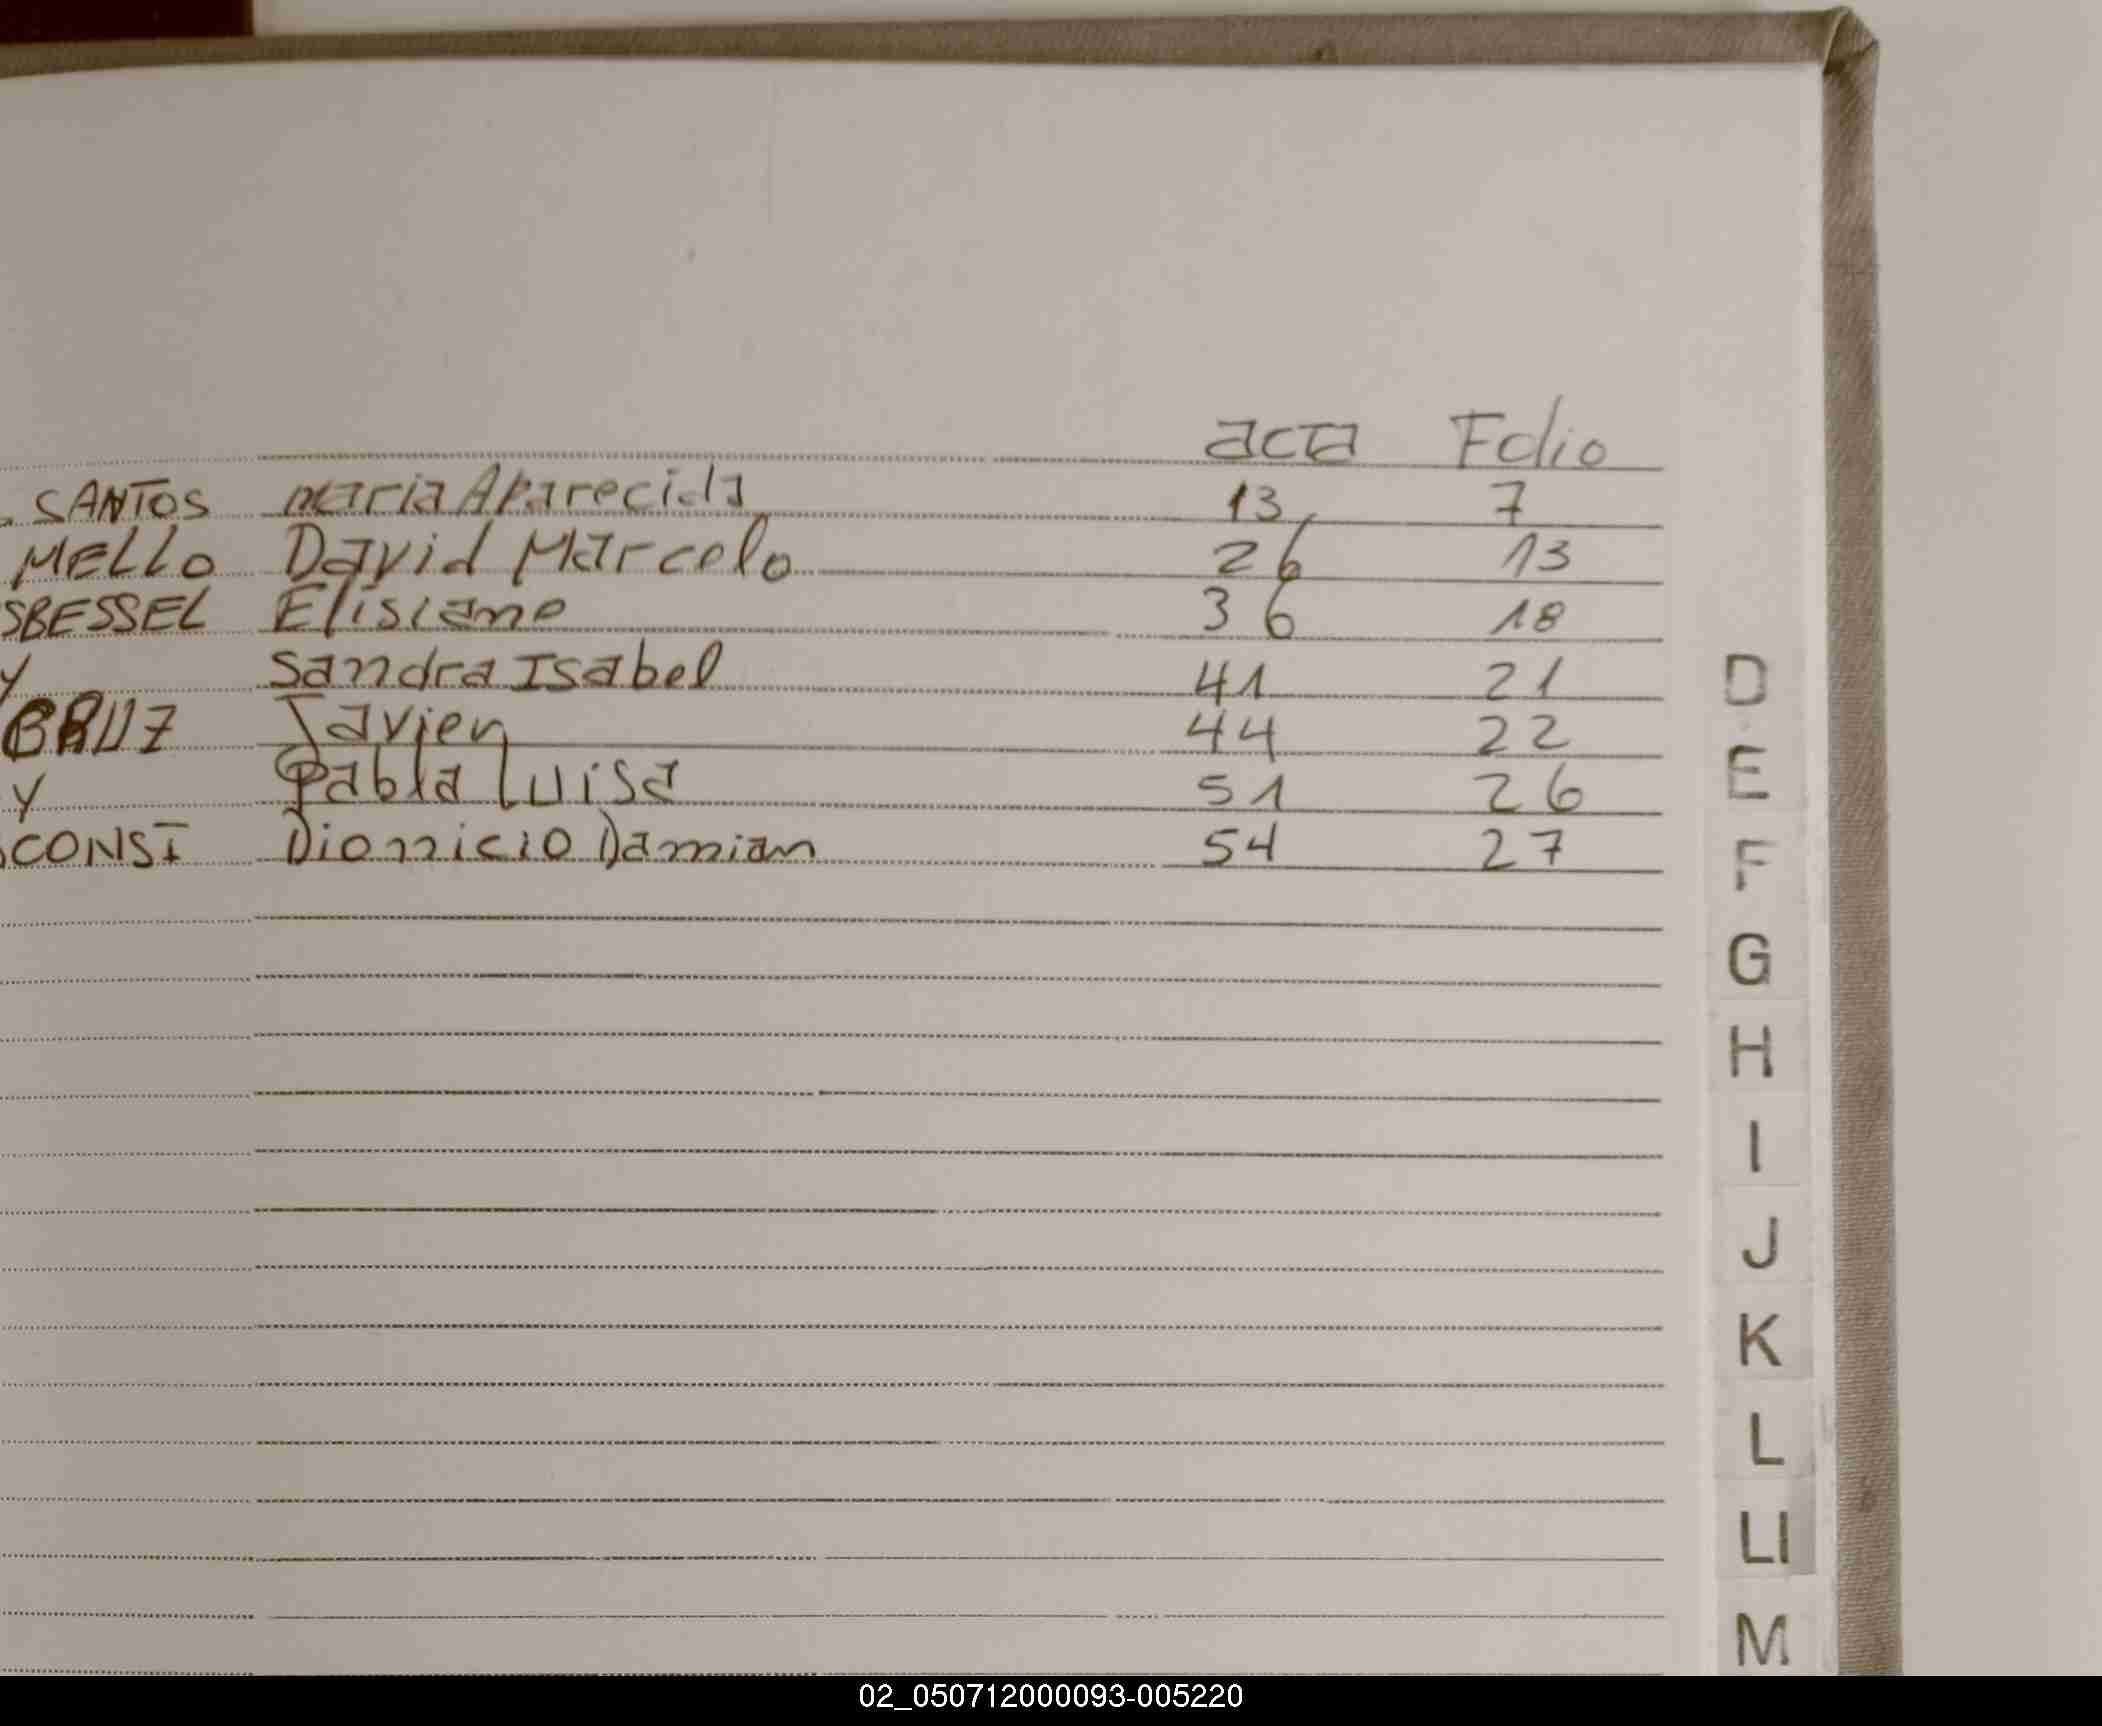 acta Folio
SANTOS maria Aparecida 13 7
MELLO David Marcelo 26 13
SBESSEL Elisiane 36 18
y Sandra Isabel 41 21
Javier 44 22
y Pabla Luisa 51 26
CONSI Dionicio Damian 54 27
D
E
F
G
H
I
J
K
L
LL
M
02_050712000093-005220